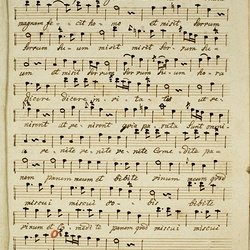 magnam fe - cit homo et misit servum
servum su - um misit misit servum su -
um et misit servum servum su - um ho - ra
dicere dicere in - vi - ta - tis ut ve -
nirent ut ve - nirent quia parata sunt omni -
a ve - nite ve - nite comedite pa -
nem panem meum et bibite vinum meum quod
miscui miscui vo - bis bibite
vinum et comedite panem quod miscui miscui